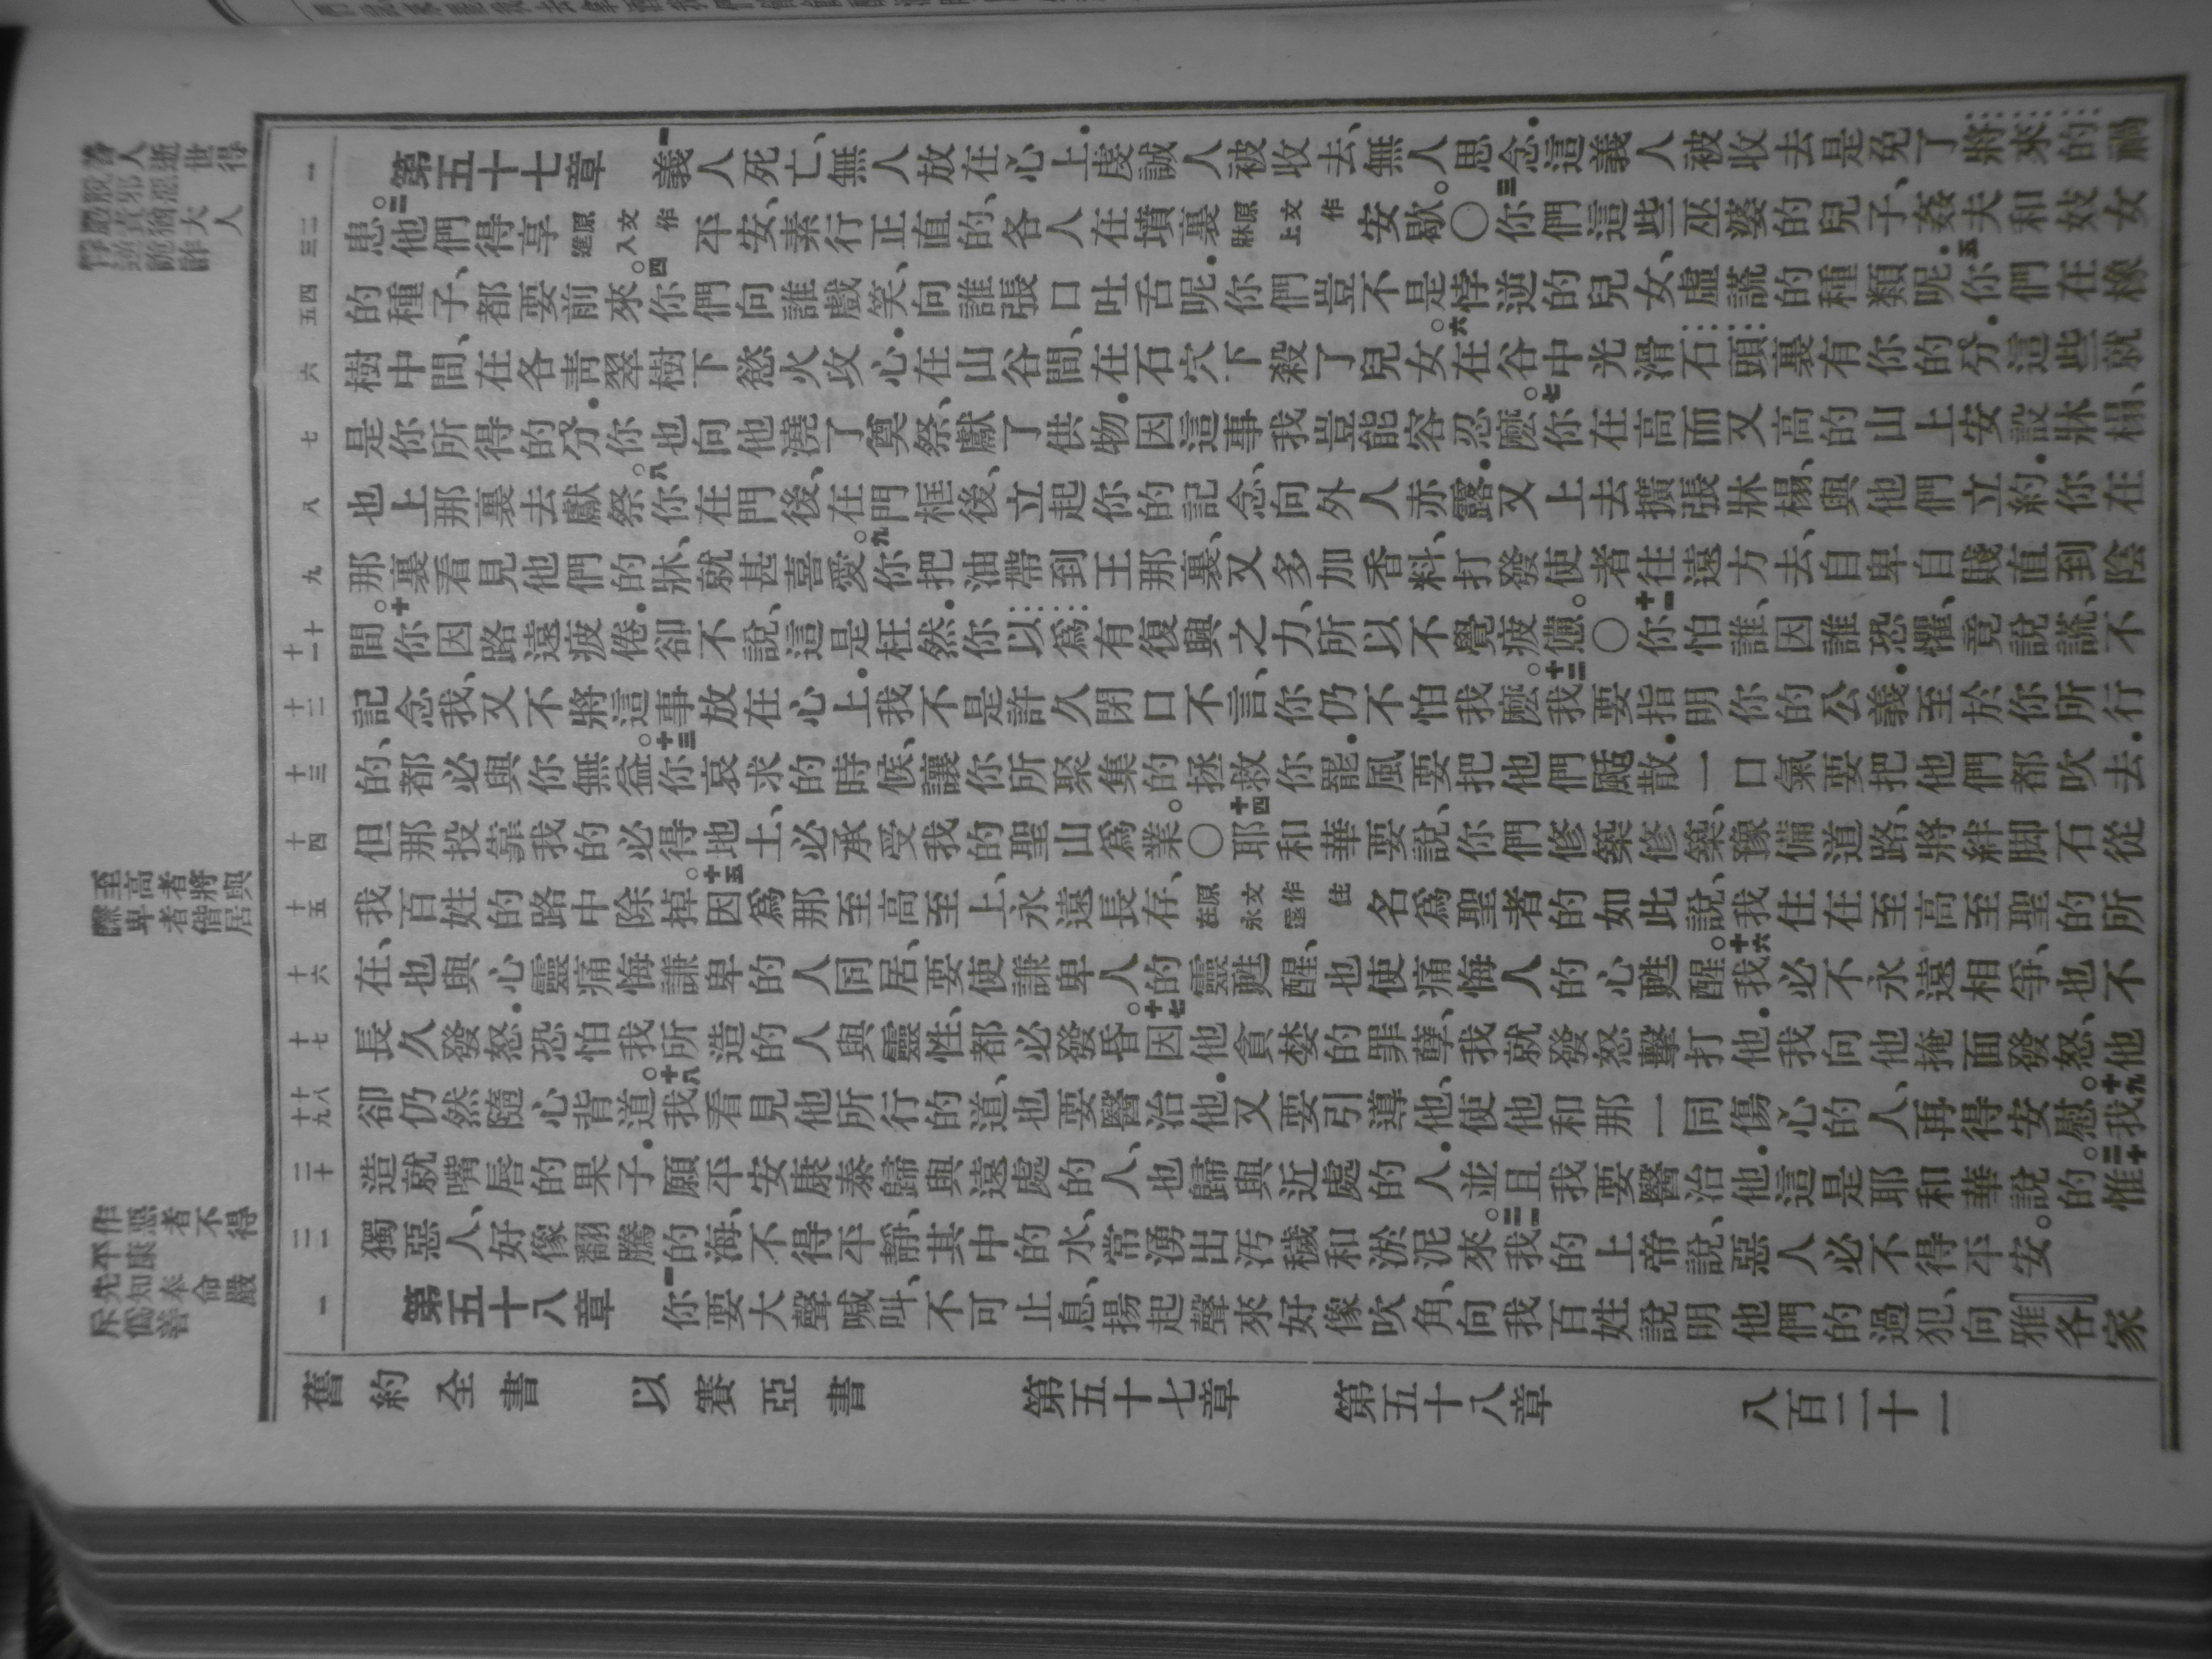 至高者將與
卑者偕居
作惡者不得
平康
先知奉命嚴
斥僞善
一 第五十七章 一義人死亡、無人放在心上．虔誠人被收去、無人思念．這義人被收去是免了將來的禍
二 三 患。二他們得享原文作進入平安、素行正直的、各人在墳裏原文作牀上安歇。○三你們這些巫婆的兒子、姦夫和妓女
四 五 的種子、都要前來。四你們向誰戲笑、向誰張口吐舌呢．你們豈不是悖逆的兒女、虛謊的種類呢．五你們在橡
六 樹中間、在各青翠樹下慾火攻心．在山谷間、在石穴下殺了兒女。六在谷中光滑石頭裏有你的分．這些就
七 是你所得的分．你也向他澆了奠祭、獻了供物．因這事我豈能容忍麼。七你在高而又高的山上安設牀榻、
八 也上那裏去獻祭。八你在門後、在門框後、立起你的記念、向外人赤露．又上去擴張牀榻、與他們立約．你在
九 那裏看見他們的牀、就甚喜愛。九你把油帶到王那裏、又多加香料、打發使者往遠方去、自卑自賤直到陰
十 十一 間。十你因路遠疲倦．卻不說、這是枉然．你以爲有復興之力、所以不覺疲憊。○十一你怕誰、因誰恐懼、竟說謊、不
十二 記念我、又不將這事放在心上．我不是許久閉口不言、你仍不怕我麼。十二我要指明你的公義．至於你所行
十三 的、都必與你無益。十三你哀求的時候、讓你所聚集的拯救你罷．風要把他們颳散．一口氣要把他們都吹去．
十四 但那投靠我的必得地土、必承受我的聖山爲業。○十四耶和華要說、你們修築修築、豫備道路、將絆脚石從
十五 我百姓的路中除掉。十五因爲那至高至上、永遠長存、原文作住在永遠名爲聖者的如此說、我住在至高至聖的所
十六 在、也與心靈痛悔謙卑的人同居、要使謙卑人的靈甦醒、也使痛悔人的心甦醒。十六我必不永遠相爭、也不
十七 長久發怒．恐怕我所造的人與靈性、都必發昏。十七因他貪婪的罪孽、我就發怒擊打他．我向他掩面發怒、他
十八 十九 卻仍然隨心背道。十八我看見他所行的道、也要醫治他．又要引導他、使他和那一同傷心的人、再得安慰。十九我
二十 造就嘴唇的果子．願平安康泰歸與遠處的人、也歸與近處的人．並且我要醫治他．這是耶和華說的。二十惟
二一 獨惡人、好像翻騰的海、不得平靜、其中的水、常湧出汚穢和淤泥來。二一我的上帝說、惡人必不得平安。
一 第五十八章 一你要大聲喊叫、不可止息、揚起聲來好像吹角、向我百姓說明他們的過犯、向雅各家
舊約全書 以賽亞書 第五十七章 第五十八章 八百二十一